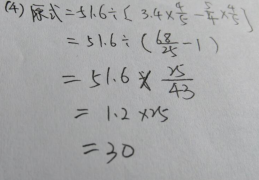 (4) 原式=51.6÷[3.4×4/5-5/4×4/5]
=51.6÷(68/25-1)
=51.6×25/43
=1.2×25
=30